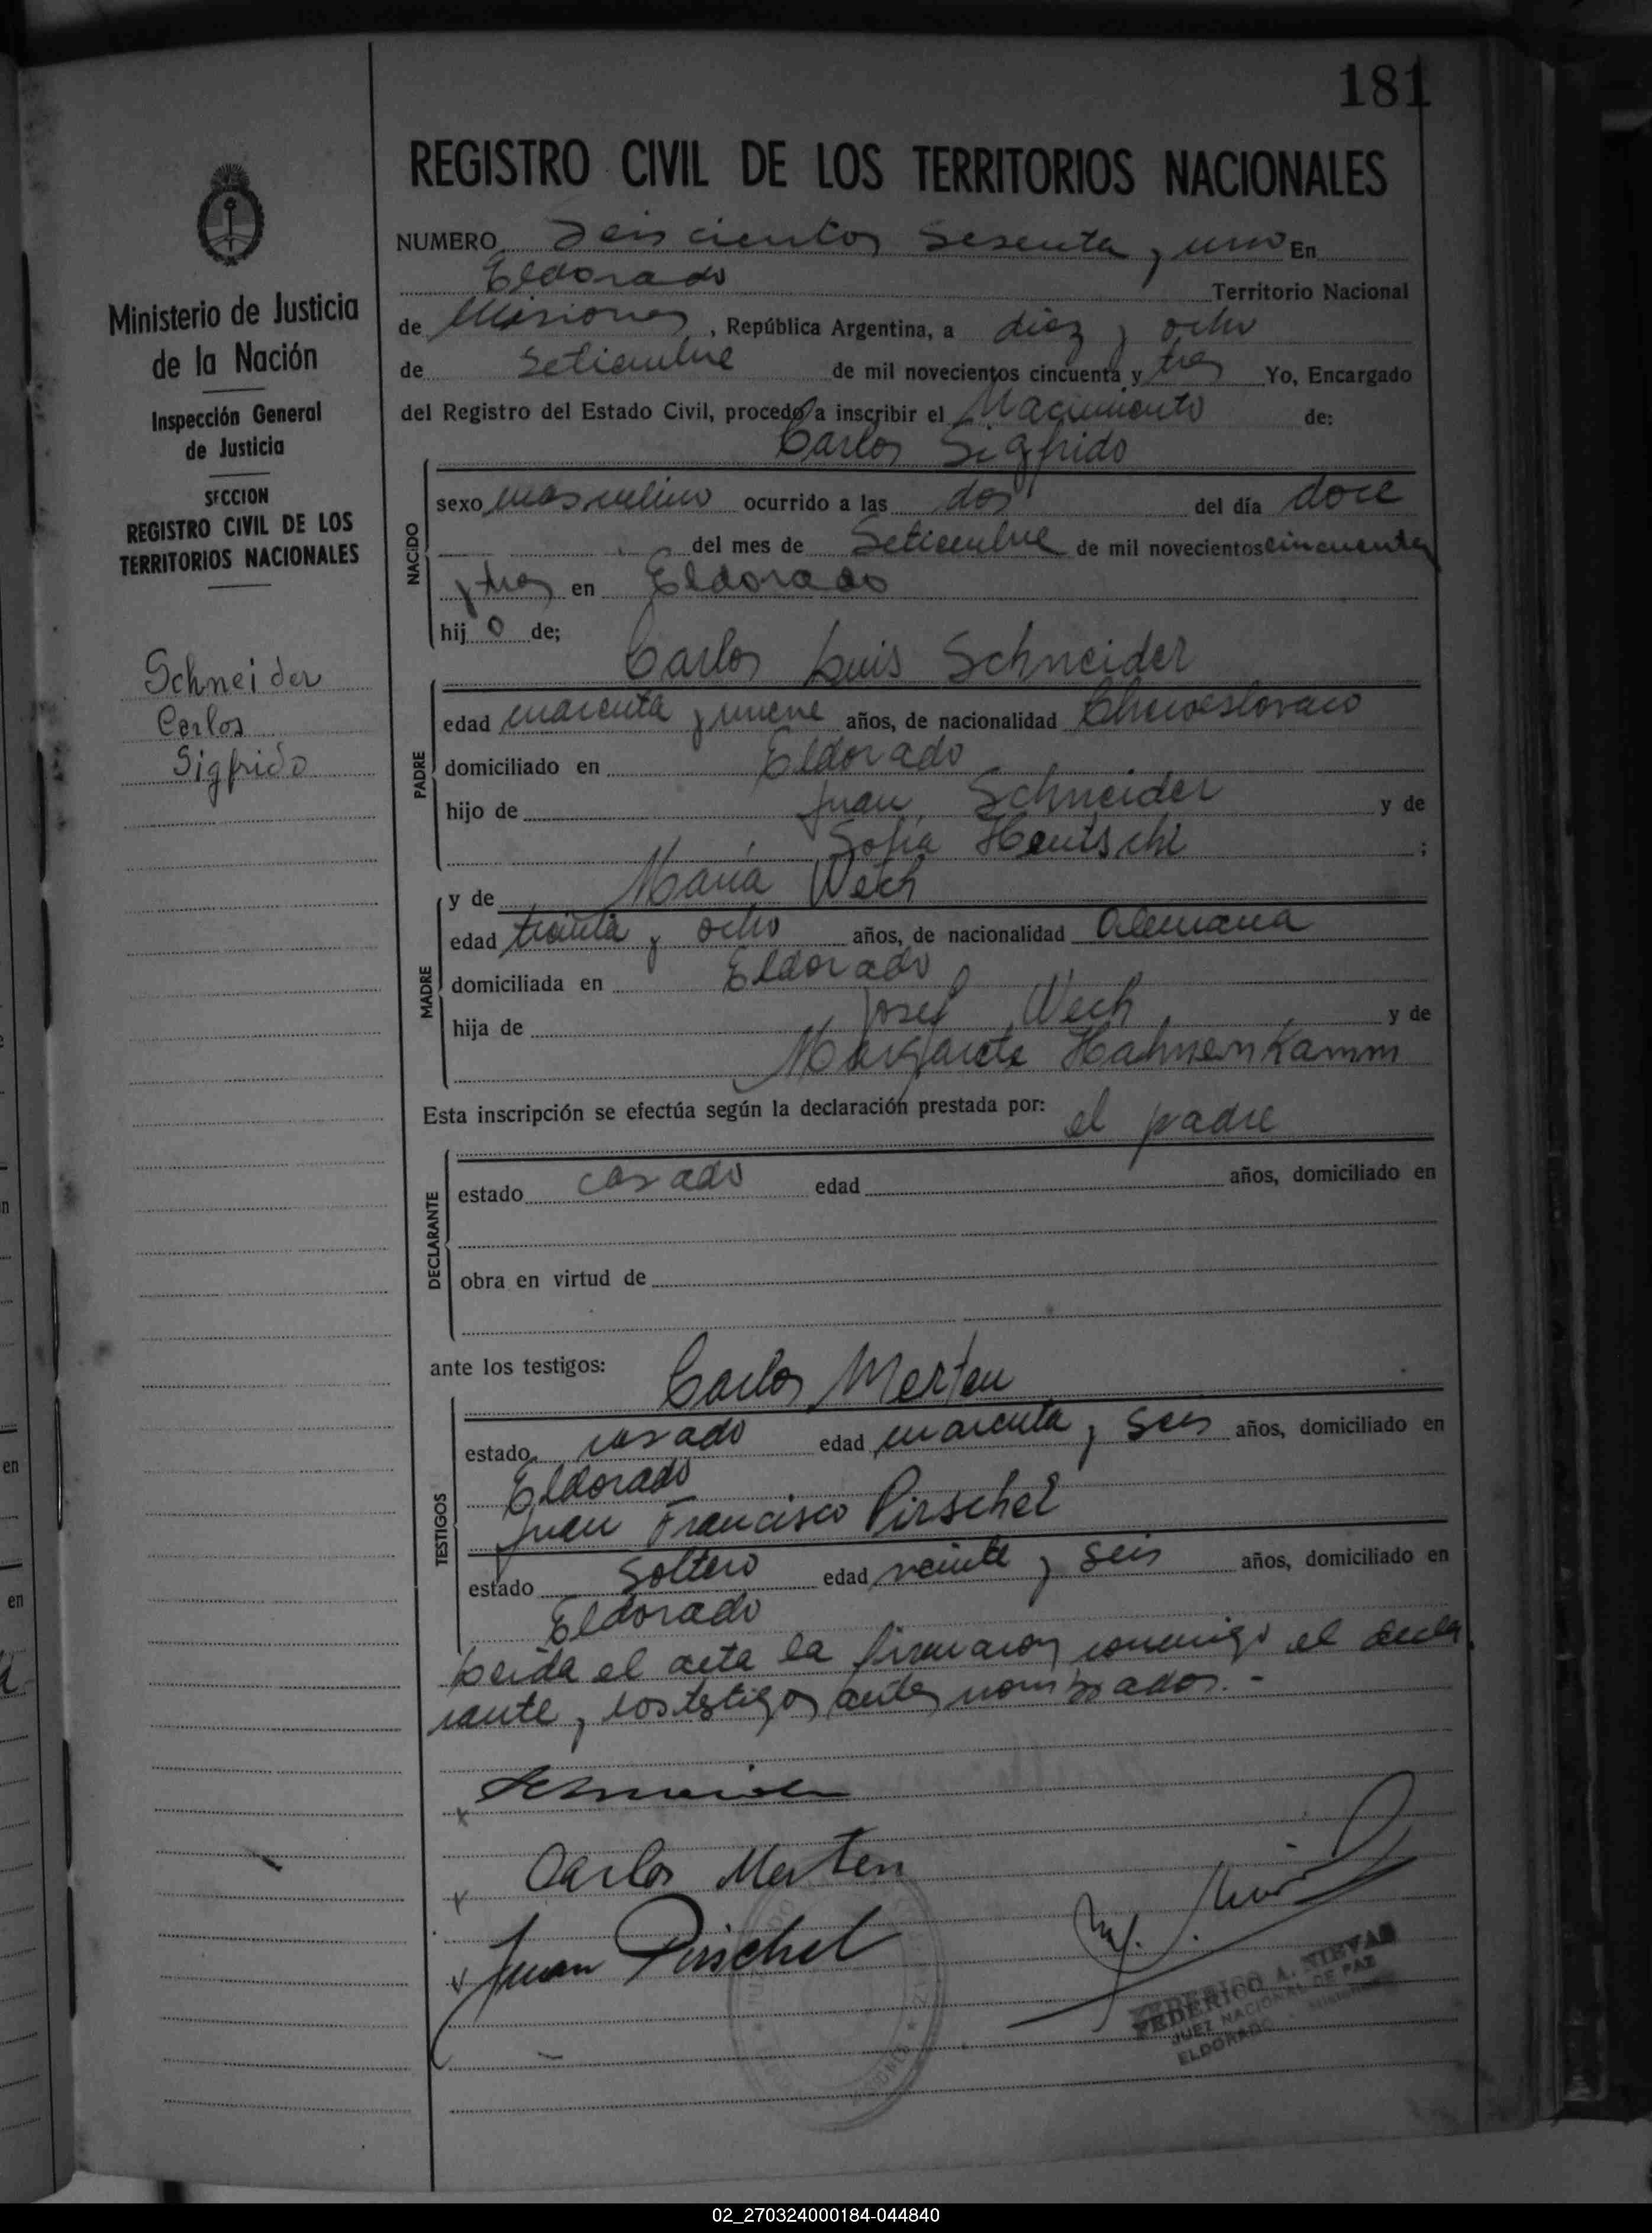 181
REGISTRO CIVIL DE LOS TERRITORIOS NACIONALES
NUMERO Seiscientos sesenta y uno En
Eldorado Territorio Nacional
de Misiones, República Argentina, a diez y ocho
de Setiembre de mil novecientos cincuenta y tres Yo, Encargado
del Registro del Estado Civil, procedo a inscribir el Nacimiento de:
Carlos Sigfrido
NACIDO
sexo masculino ocurrido a las dos del día doce
del mes de Setiembre de mil novecientos cincuenta
y tres en Eldorado
hijo de;
Carlos Luis Schneider
PADRE
edad cuarenta y nueve años, de nacionalidad Checoeslovaco
domiciliado en Eldorado
hijo de Juan Schneider y de
Sofia Hentschi ;
y de María Wech
MADRE
edad treinta y ocho años, de nacionalidad Alemana
domiciliada en Eldorado
hija de Josef Wech y de
Margarete Hahnenkamm
Esta inscripción se efectúa según la declaración prestada por: el padre
DECLARANTE
estado casado edad años, domiciliado en
obra en virtud de
ante los testigos: Carlos Merten
TESTIGOS
estado casado edad cuarenta y seis años, domiciliado en
Eldorado
Juan Francisco Pirschel
estado soltero edad veinte y seis años, domiciliado en
Eldorado
Leida el acta la firmaron conmigo el decla
rante y los testigos antes nombrados.-
Schneider
Carlos Merten
Juan Pirschel
FEDERICO A. NIEVAS
JUEZ NACIONAL DE PAZ
ELDORADO - Misiones
Ministerio de Justicia
de la Nación
Inspección General
de Justicia
SECCION
REGISTRO CIVIL DE LOS
TERRITORIOS NACIONALES
Schneider
Carlos
Sigfrido
en
en
02_270324000184-044840